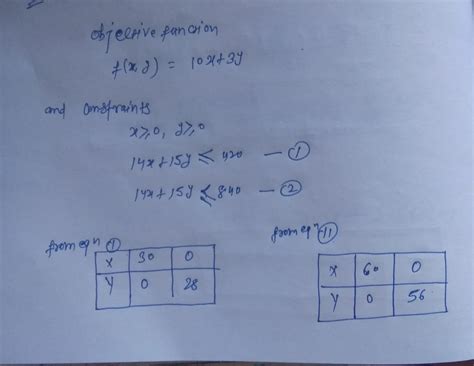 objective function
f(x,y) = 10x+3y
and constraints
x≥0, y≥0
14x+15y ≤ 420 — ①
14x+15y ≤ 840 — ②
from eqn ①
X 30 0
Y 0 28
from eqn ⑪
X 60 0
Y 0 56